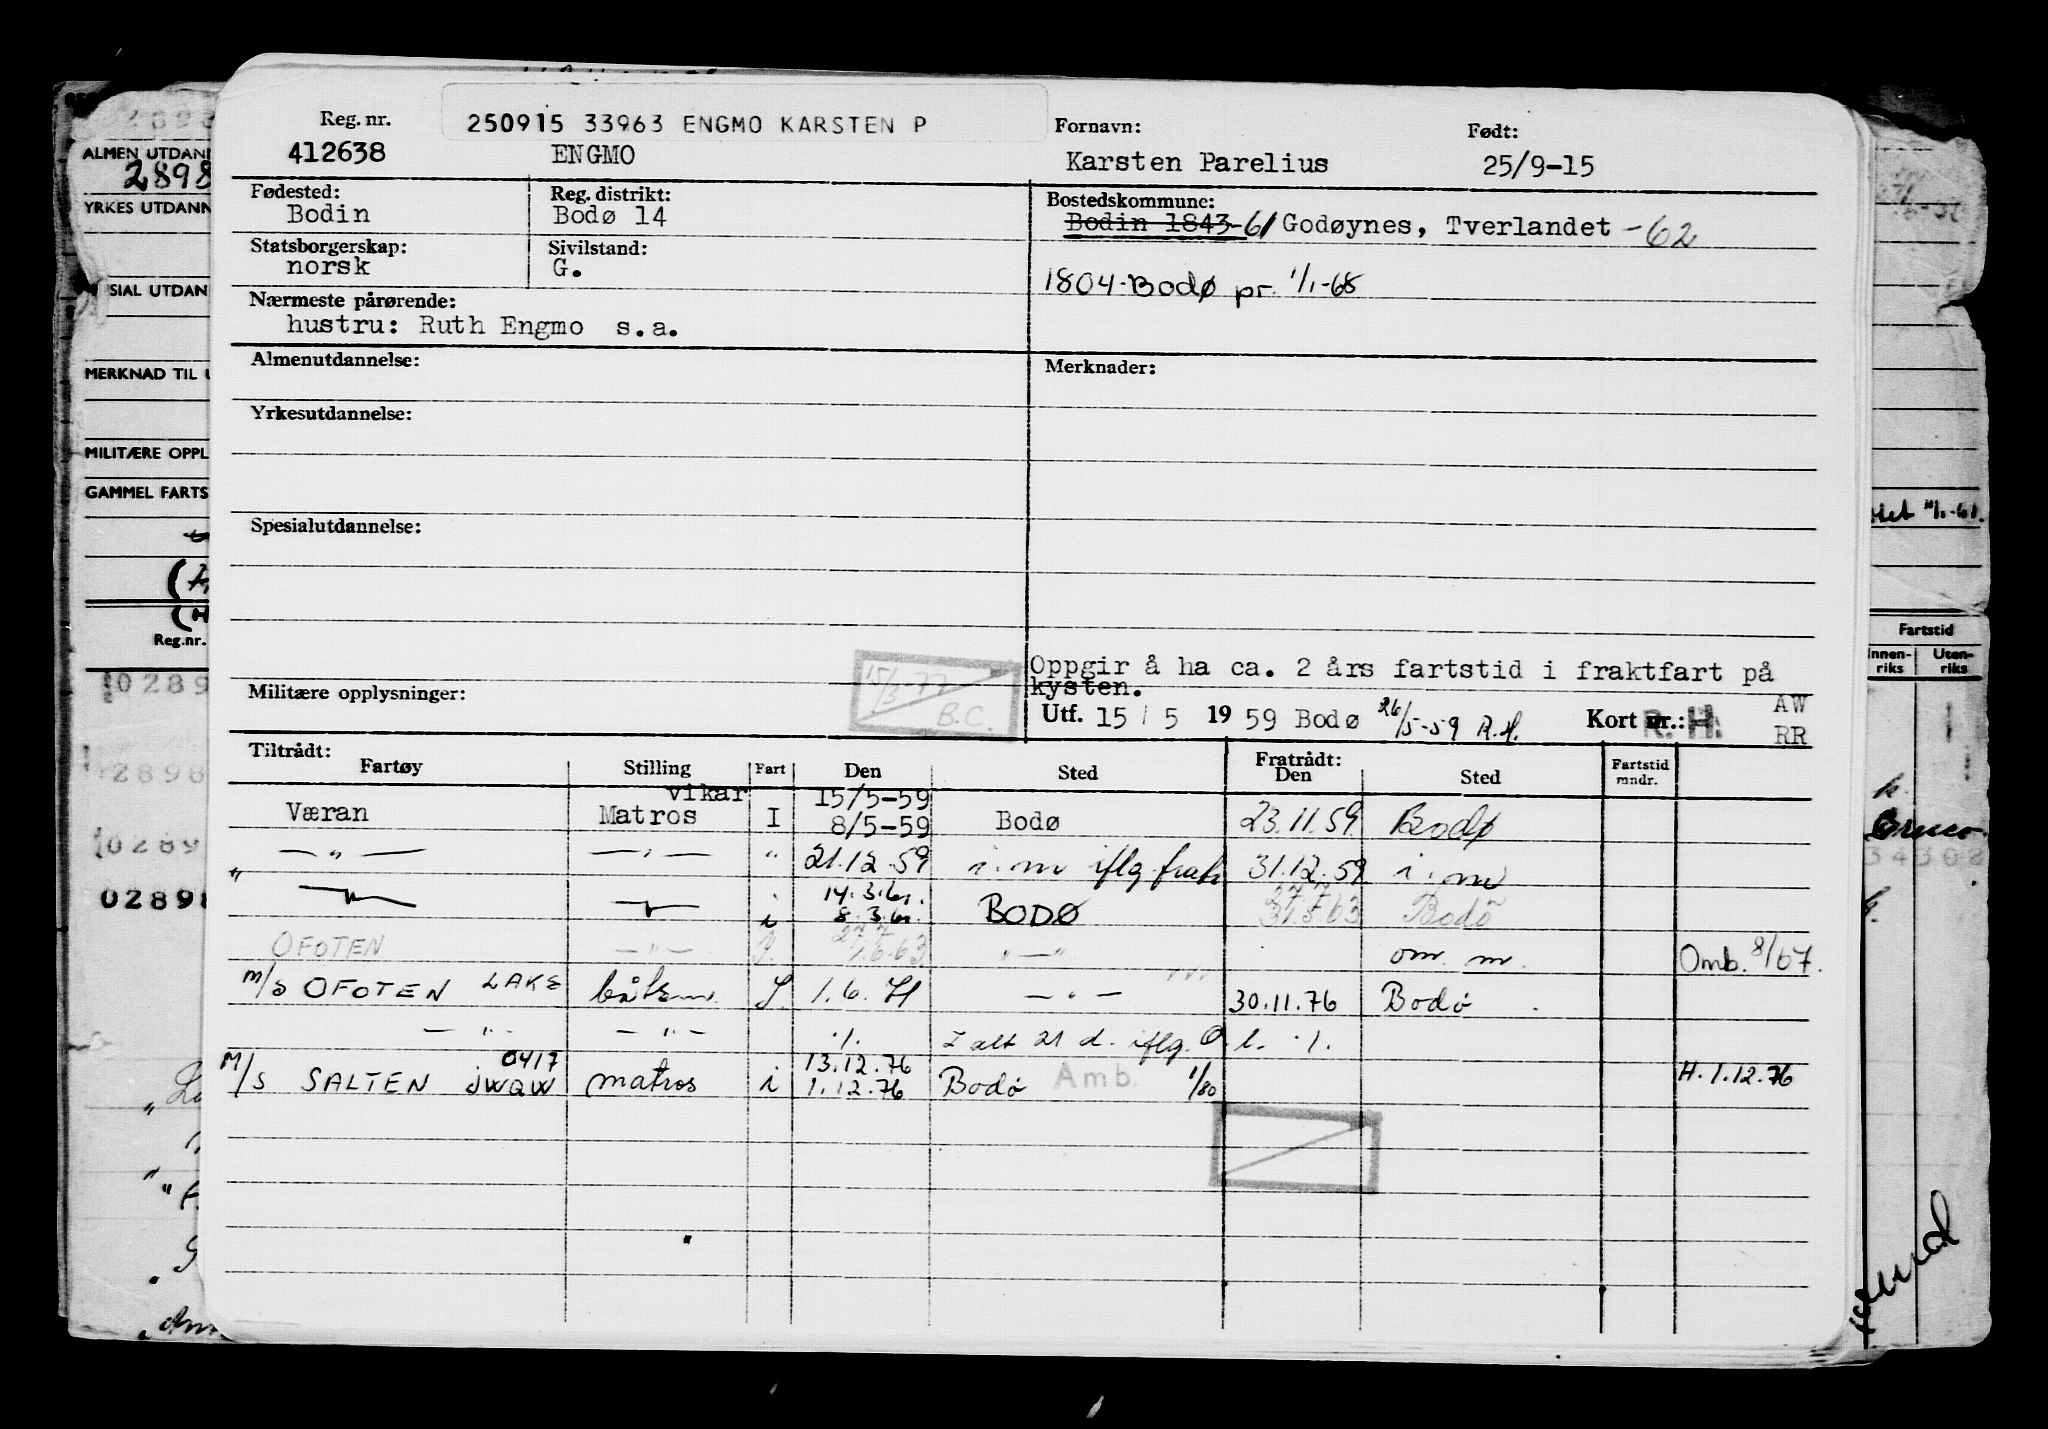 250915 33963 ENGMO KARSTEN P
Reg. nr.
412638
ENGMO
Fornavn:
Karsten Parelius
Født:
25/9-15
Fødested:
Bodin
Reg. distrikt:
Bodø 14
Bostedskommune:
Bodin 1843-61 Godøynes, Tverlandet -62
Statsborgerskap:
norsk
Sivilstand:
G.
1804-Bodø pr. 1/1-68
Nærmeste pårørende:
hustru: Ruth Engmo s.a.
Almenutdannelse:
Merknader:
Yrkesutdannelse:
Spesialutdannelse:
Oppgir å ha ca. 2 års fartstid i fraktfart på
kysten.
Militære opplysninger:
15/3-77
B.C.
Utf. 15 / 5 1959 Bodø 26/5-59 R.H.
Kort nr.: R. H.
AW
RR
Tiltrådt:
Fartøy Stilling Fart Den Sted
Fratrådt:
Den Sted
Fartstid
mndr.
vikar 15/5-59
Væran Matros I 8/5-59 Bodø 23.11.59 Bodø
" — " — — " — " 21.12.59 i. m iflg. 31.12.59 i. m
14.3.61.
— " — — " — i 8.3.61. BODØ 27.7 31.5.63 Bodø
27.7
OFOTEN — " — I. 1.6.63 " — " om. m. Omb. 8/67.
M/S OFOTEN LAKE båtsm. I 1.6.71 — " — 30.11.76 Bodø
— " — — " — ./. I alt 21 d. iflg. O.l. ./.
M/S SALTEN 0417 JWQW matros i 13.12.76 1.12.76 Bodø Amb. 1/80 H. 1.12.76
ALMEN UTDAN
2898
YRKES UTDANN
SIAL UTDAN
MERKNAD TIL U
MILITÆRE OPPL
GAMMEL FARTS
Reg.nr.
0289
2898
0289
0289
Fartstid
Innen-
riks
Uten-
riks
34308